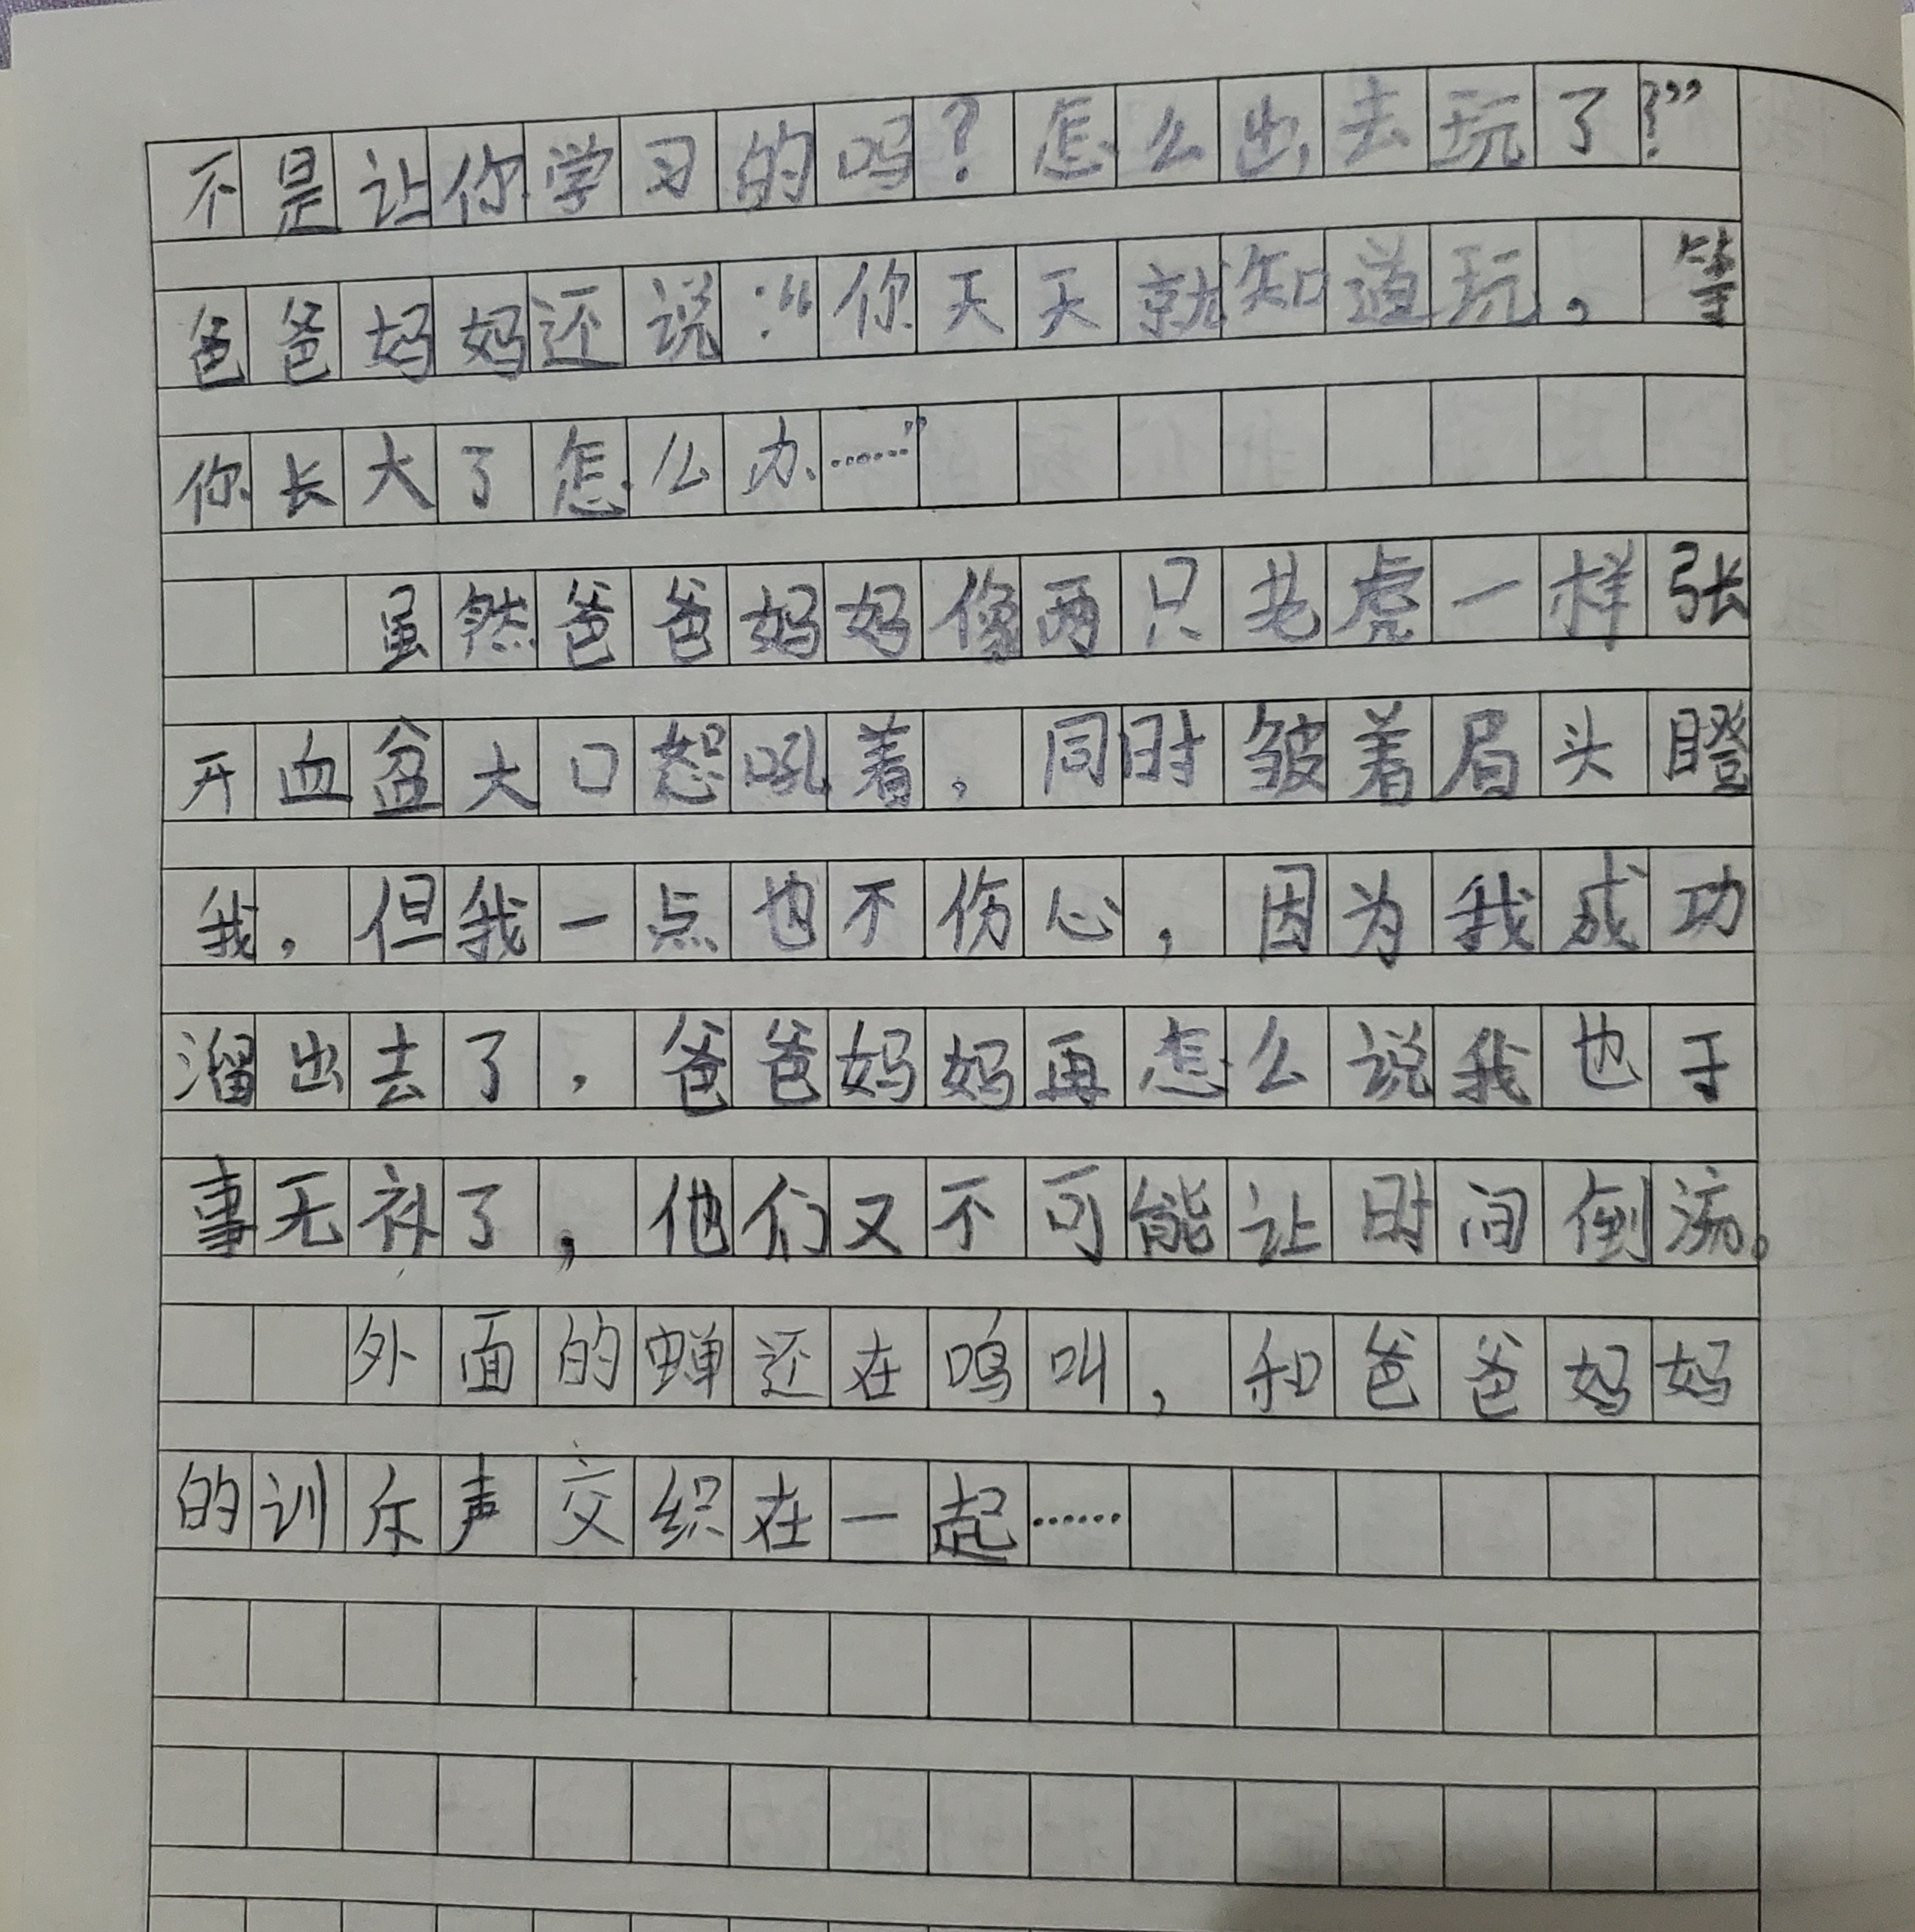 不是让你学习的吗？怎么出去玩了？”
爸爸妈妈还说：“你天天就知道玩，等
你长大了怎么办……”
虽然爸爸妈妈像两只老虎一样张
开血盆大口恕吼着，同时皱着眉头瞪
我，但我一点也不伤心，因为我成功
溜出去了，爸爸妈妈再怎么说我也于
事无补了，他们又不可能让时间倒流。
外面的蝉还在鸣叫，和爸爸妈妈
的训斥声交织在一起……